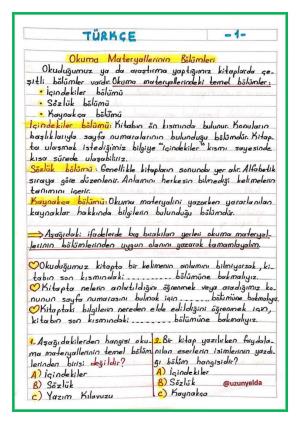 TÜRKÇE
-1-
Okuma Materyallerinin Bölümleri
Okuduğumuz ya da araştırma yaptığımız kitaplarda çe-
şitli bölümler vardır. Okuma materyallerindeki temel bölümler:
• İçindekiler bölümü
• Sözlük bölümü
• Kaynakça bölümü
İçindekiler bölümü: Kitabın ön kısmında bulunur. Konuların
başlıklarıyla sayfa numaralarının bulunduğu bölümdür. Kitap-
ta ulaşmak istediğimiz bilgiye "içindekiler" kısmı sayesinde
kısa sürede ulaşabiliriz.
Sözlük bölümü: Genellikle kitapların sonunda yer alır. Alfabetik
sıraya göre düzenlenir. Anlamını herkesin bilmediği kelimelerin
tanımını içerir.
Kaynakça bölümü: Okuma materyalini yazarken yararlanılan
kaynaklar hakkında bilgilerin bulunduğu bölümdür.
Aşağıdaki ifadelerde boş bırakılan yerleri okuma materyal-
lerinin bölümlerinden uygun olanını yazarak tamamlayalım.
Okuduğumuz kitapta bir kelimenin anlamını bilmiyorsak, ki-
tabın son kısmındaki .................... bölümüne bakmalıyız.
Kitapta nelerin anlatıldığını öğrenmek veya aradığımız ko-
nunun sayfa numarasını bulmak için ............ bölümüne bakmalıyız.
Kitaptaki bilgilerin nereden elde edildiğini öğrenmek için,
kitabın son kısmındaki .................... bölümüne bakmalıyız.
1. Aşağıdakilerden hangisi oku-
ma materyallerinin temel bölüm-
lerinden birisi değildir?
A) İçindekiler
B) Sözlük
C) Yazım Kılavuzu
2. Bir kitap yazılırken faydala-
nılan eserlerin isimlerinin yazıl-
dığı bölüm hangisidir?
A) İçindekiler
B) Sözlük
C) Kaynakça
@uzunyelda